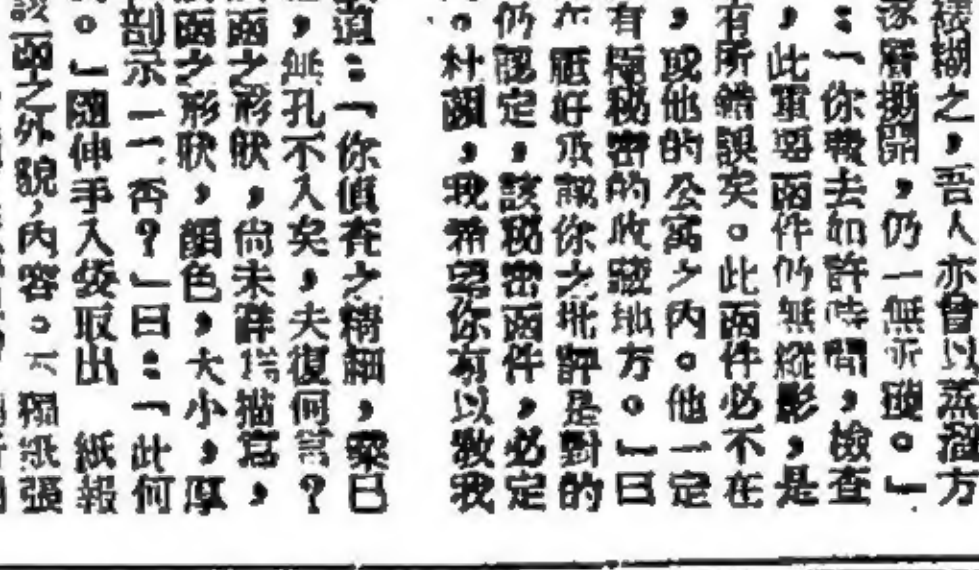 糊之，吾人亦曾以蒸溜方
逐層撕開，仍一無所獲。」
：「你費去如許時間，檢查
，此重要函件仍無縱影，是
有所錯誤矣。此函件必不在
，或他的公寓之內。他一定
有極秘密的收藏地方。」曰
在脏好承認你之批評是對的
仍認定，該秘密函件，必定
。杜蘭，我希望你有以教我
道：「你偵查之精細，業已
，無孔不入矣，夫復何言？
函之形狀，尚未詳描寫，
函之形狀，顏色，大小，厚
剖示一二否？」曰：「此何
。」隨伸手入袋取出 紙報
該函之外貌，內容。紙張